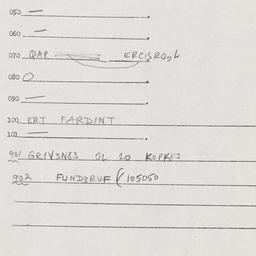 050 —
060 —
070 QAP ERCISROOL
080 0
090 —
100 ERT FARDINT
101 —
901 GRIV3N83 GL 10 KOPKEJ
902 FUND3RUF (105050